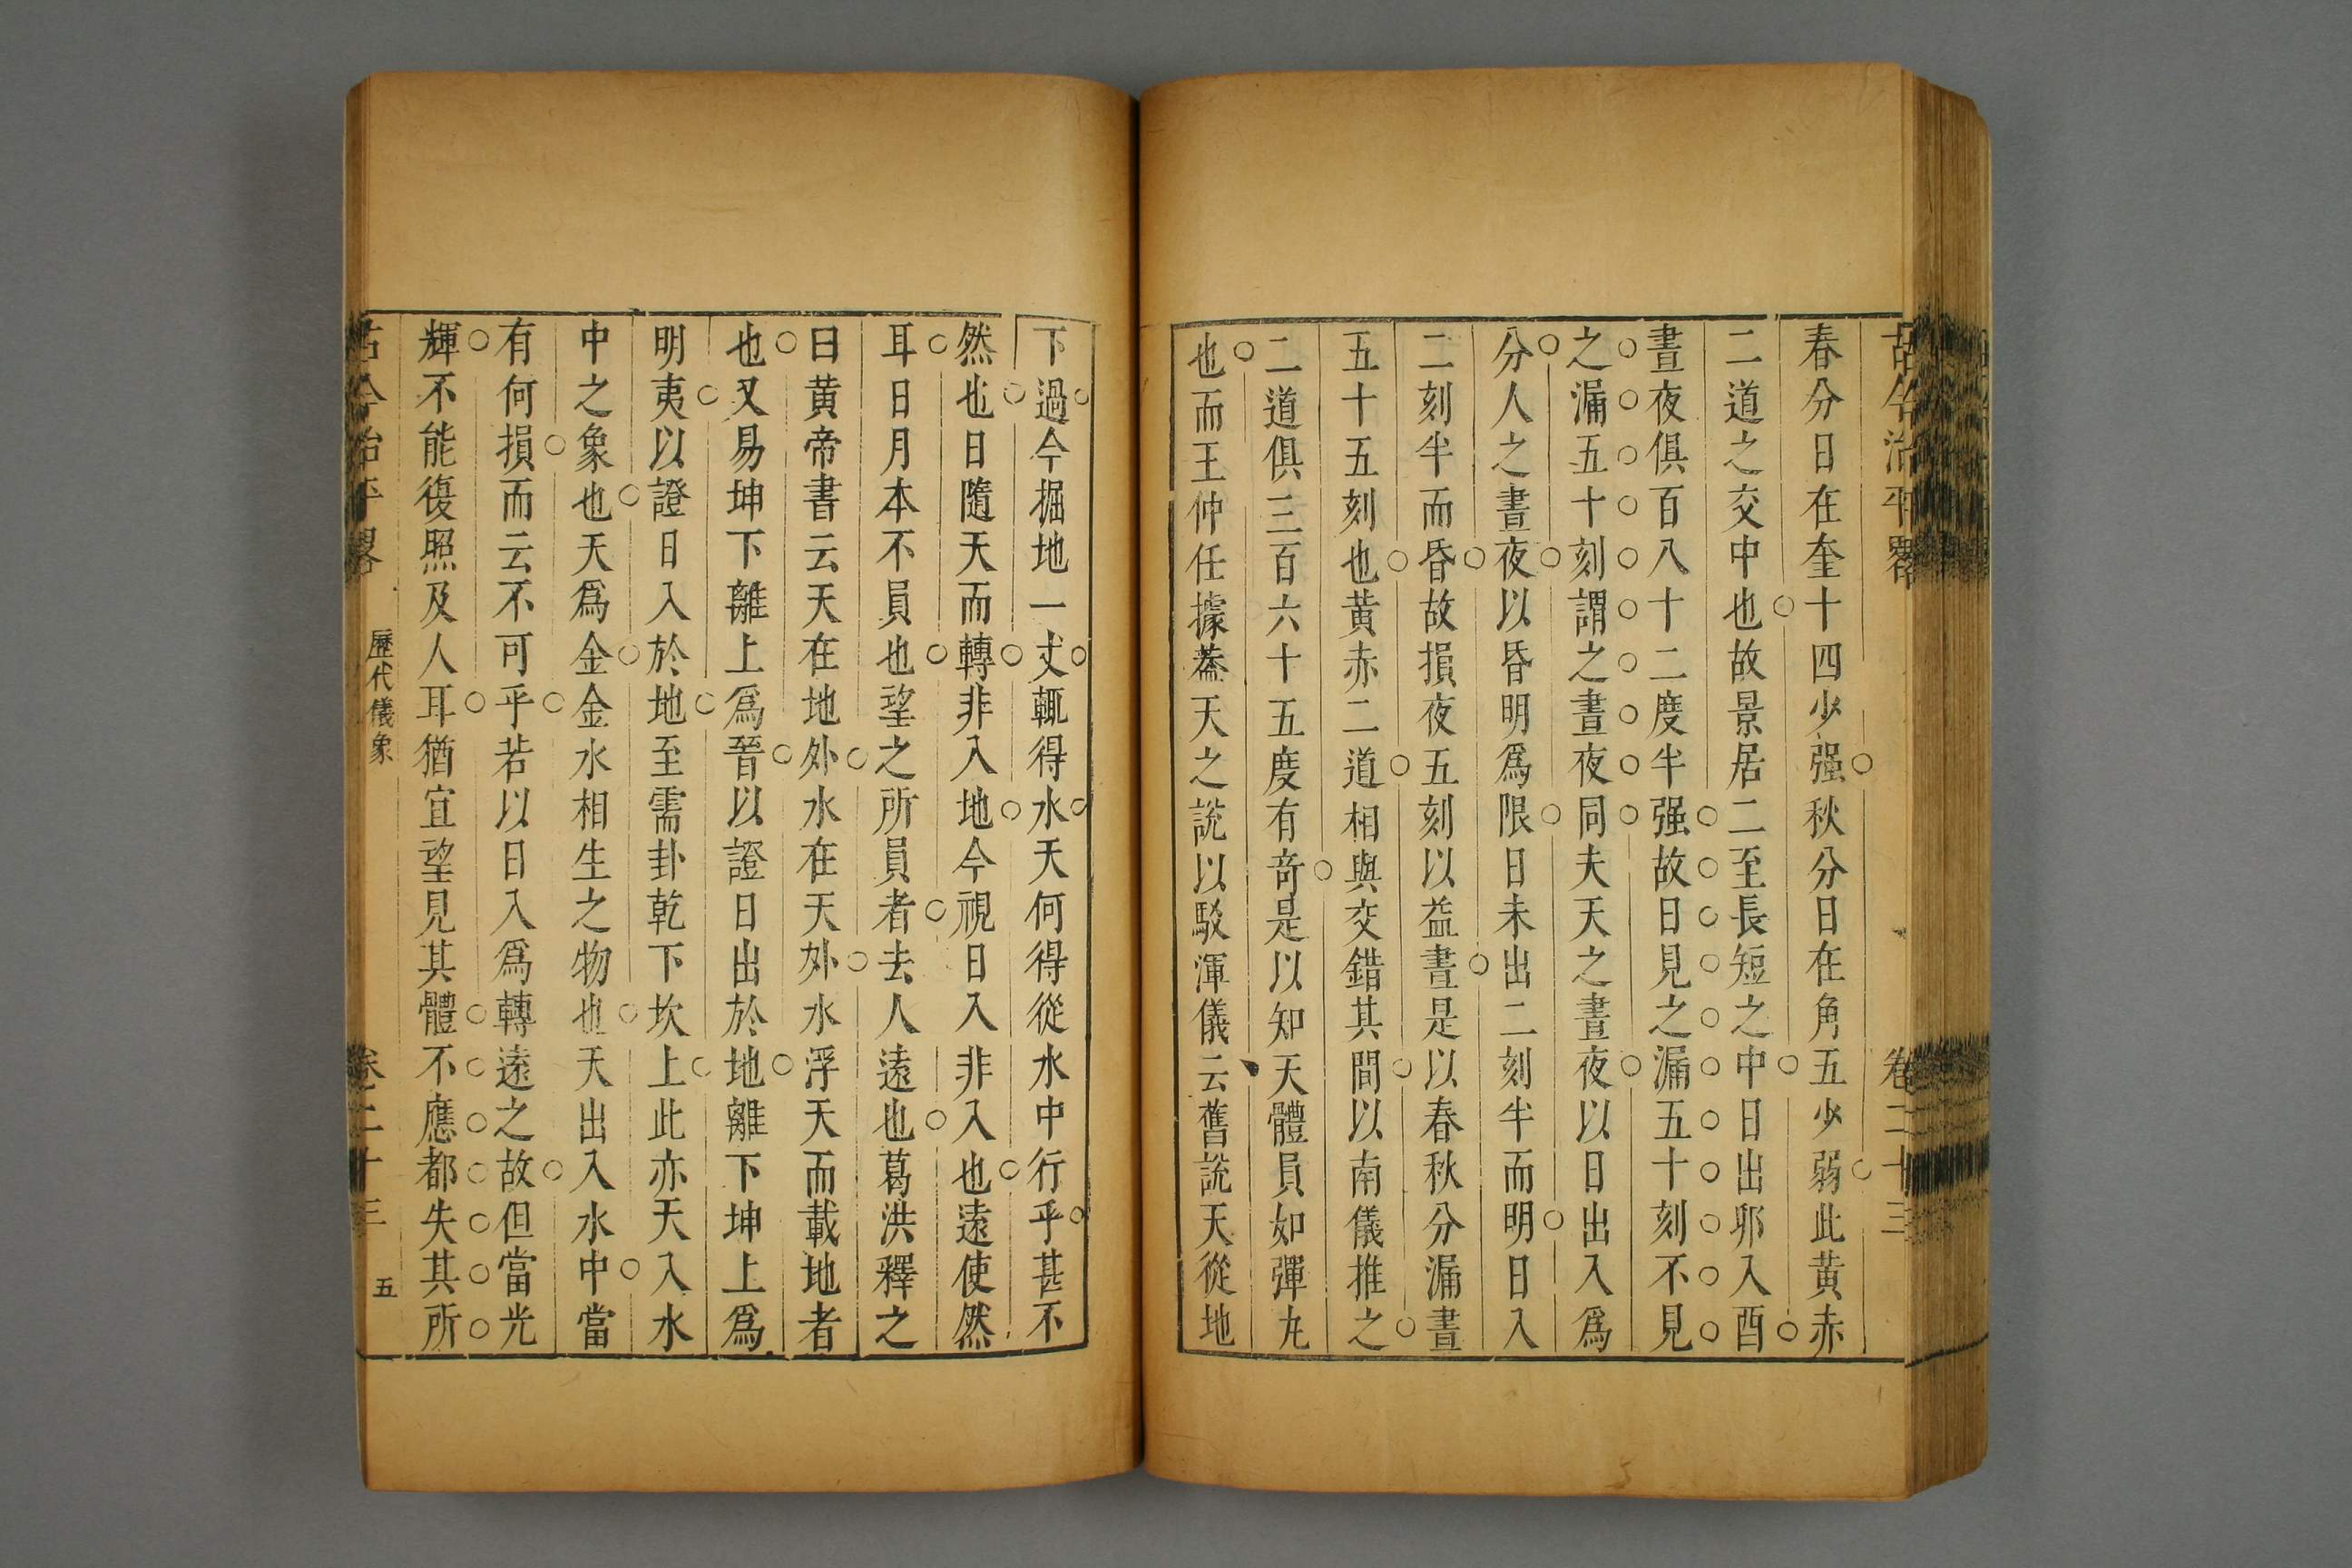 古今治平畧 卷二十三
春分日在奎十四少强秋分日在角五少弱此黄赤
二道之交中也故景居二至長短之中日出夘入酉
晝夜俱百八十二度半强故日見之漏五十刻不見
之漏五十刻謂之晝夜同夫天之晝夜以日出入爲
分人之晝夜以昏明爲限日未出二刻半而明日入
二刻半而昏故損夜五刻以益晝是以春秋分漏晝
五十五刻也黄赤二道相與交錯其間以南儀推之
二道俱三百六十五度有竒是以知天體員如彈九
也而王仲任據葢天之說以駁渾儀云舊說天從地
下過今掘地一丈輒得水天何得從水中行乎甚不
然也日隨天而轉非入地今視日入非入也遠使然
耳日月本不員也望之所員者去人遠也葛洪釋之
曰黄帝書云天在地外水在天外水浮天而載地者
也又易坤下離上爲晉以證日出於地離下坤上爲
明夷以證日入於地至需卦乾下坎上此亦天入水
中之象也天爲金金水相生之物也天出入水中當
有何損而云不可乎若以日入爲轉遠之故但當光
輝不能復照及人耳猶宜望見其體不應都失其所
古今治平畧 歷代儀象 卷二十三 五